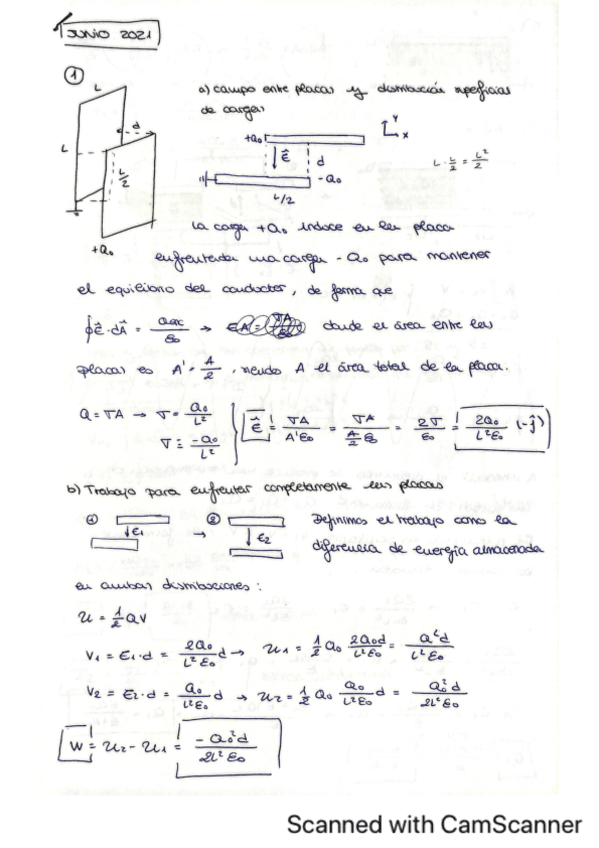 JUNIO 2021
①
L
L
d
L/2
+Q₀
a) campo entre placas y distribución superficial
de cargas
+Q₀
E⃗
d
-Q₀
L/2
Y
X
L · L/2 = L²/2
La carga +Q₀ induce en la placa
enfrentada una carga -Q₀ para mantener
el equilibrio del conductor, de forma que
∮E⃗·dA⃗ = Qenc/ε₀ → donde el área entre las
placas es A' = A/2, siendo A el área total de la placa.
Q = σA → σ = Q₀/L²
σ = -Q₀/L²
E⃗ = σA/A'ε₀ = σA/(A/2 ε₀) = 2σ/ε₀ = 2Q₀/L²ε₀ (-ĵ)
b) Trabajo para enfrentar completamente las placas
① ↓E₁ → ② ↓E₂ Definimos el trabajo como la
diferencia de energía almacenada
en ambas distribuciones:
U = 1/2 QV
V₁ = E₁·d = 2Q₀/L²ε₀ d → U₁ = 1/2 Q₀ 2Q₀d/L²ε₀ = Q²d/L²ε₀
V₂ = E₂·d = Q₀/L²ε₀ d → U₂ = 1/2 Q₀ Q₀/L²ε₀ d = Q₀²d/2L²ε₀
W = U₂ - U₁ = -Q₀²d/2L²ε₀
Scanned with CamScanner